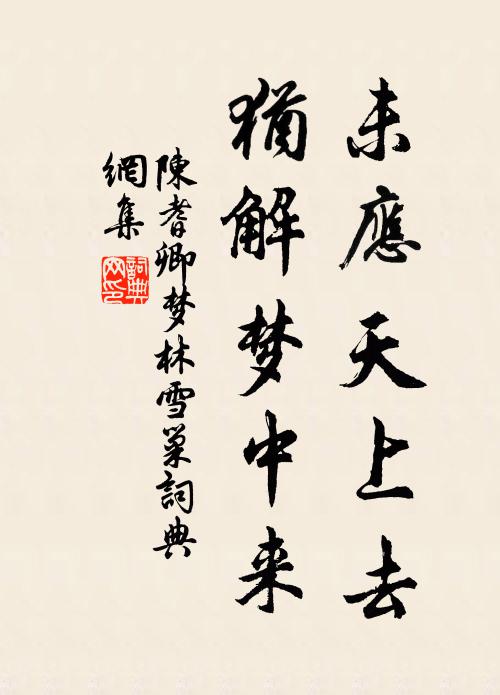 未應天上去
猶解梦中来
陳耆卿梦林雪巢詞典
網集
詞典網印